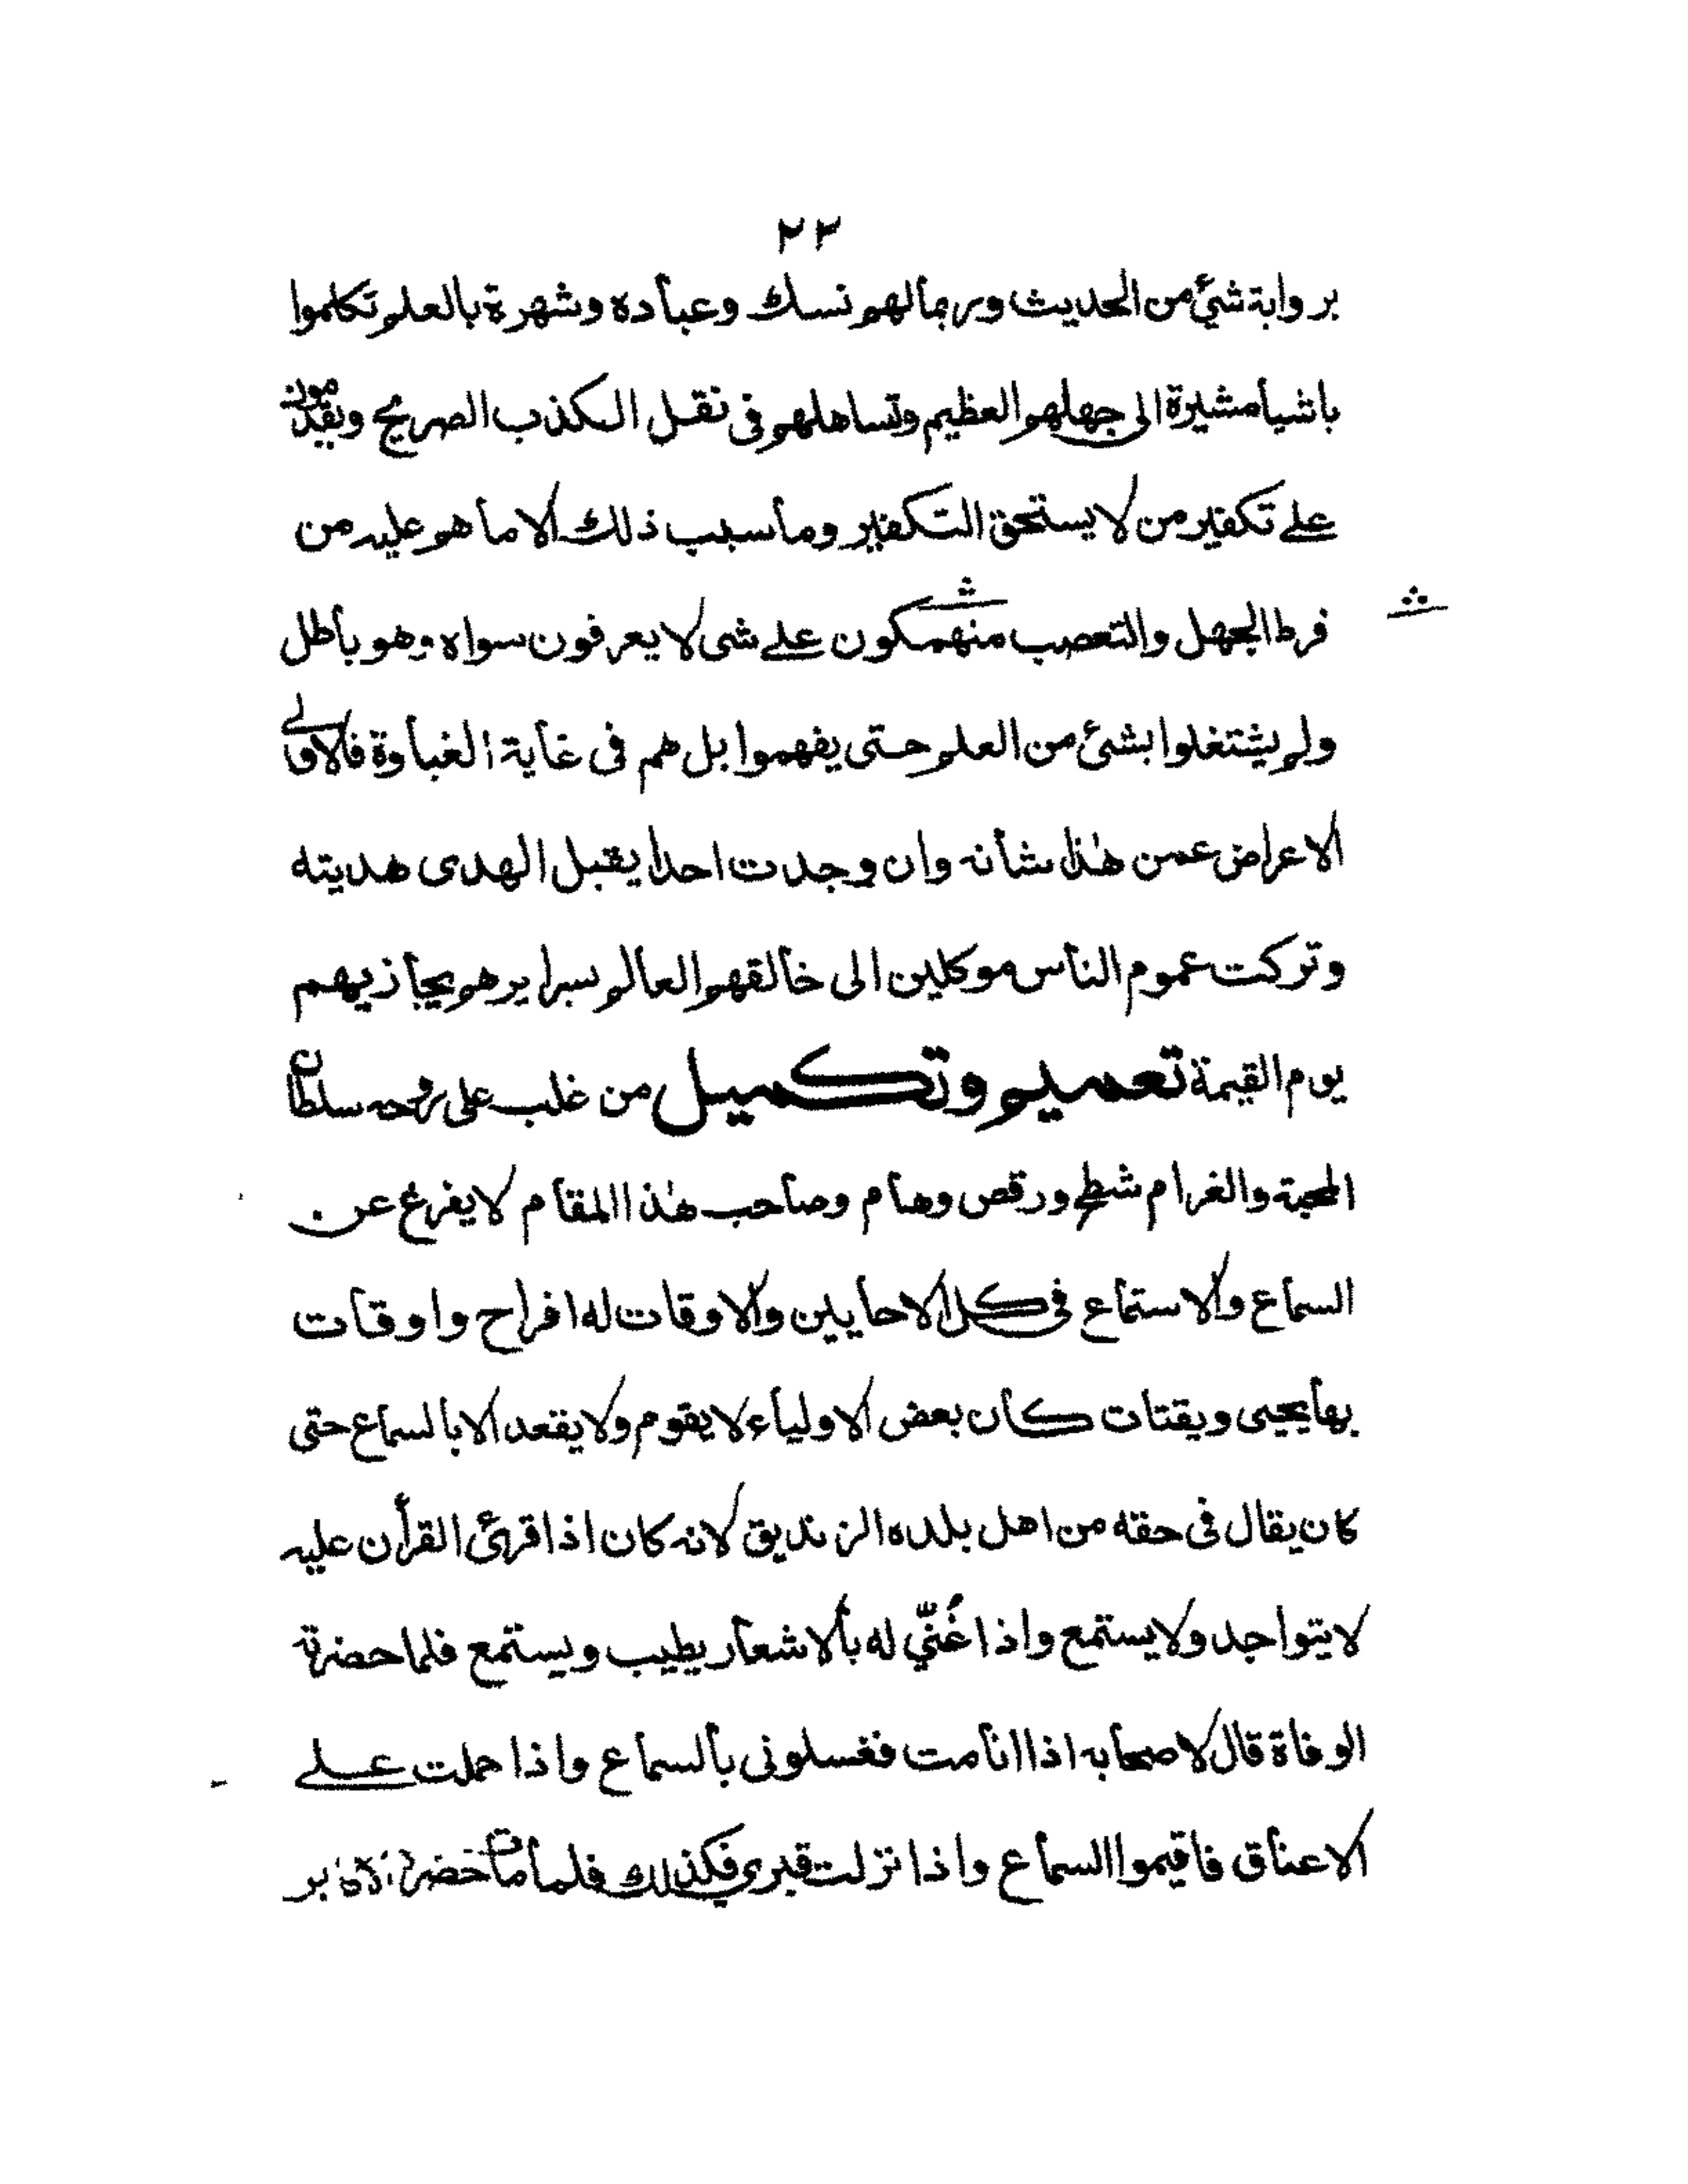 ٢٢
برواية شئ من الحديث وربما لهم نسك وعباده وشهرة بالعلم تكلموا
باشيأ مشيرة الى جهلهم العظيم وتساهلهم فى نقل الكذب الصريح ويقدمون
على تكفير من لا يستحق التكفير وما سبب ذلك الا ما هو عليه من
فرط الجهل والتعصب منهمكون على شى لا يعرفون سواه وهو باطل
ولم يشتغلوا بشئ من العلم حتى يفهموا بل هم فى غاية الغباوة فالاولى
الاعراض عمن هذا شانه وان وجدت احدا يقبل الهدى هديته
وتركت عموم الناس موكلين الى خالقهم العالم سرايرهم يجازيهم
يوم القيمة تعميم وتكميل من غلب على روحه سلطان
المحبة والغرام شطح ورقص وهام وصاحب هذا المقام لا يفرغ عن
السماع والاستماع فى كل الاحايين والاوقات له افراح واوقات
بها يحيى ويقتات كان بعض الاولياء لا يقوم ولا يقعد الا بالسماع حتى
كان يقال فى حقه من اهل بلده الزنديق لانه كان اذا قرئ القرأن عليه
لا يتواجد ولا يستمع واذا غُنّي له بالاشعار يطيب ويستمع فلما حضرته
الوفاة قال لاصحابه اذا انا مت فغسلونى بالسماع واذا حملت على
الاعناق فاقيموا السماع واذا نزلت قبري فكذلك فلما مات حضر الاكابر